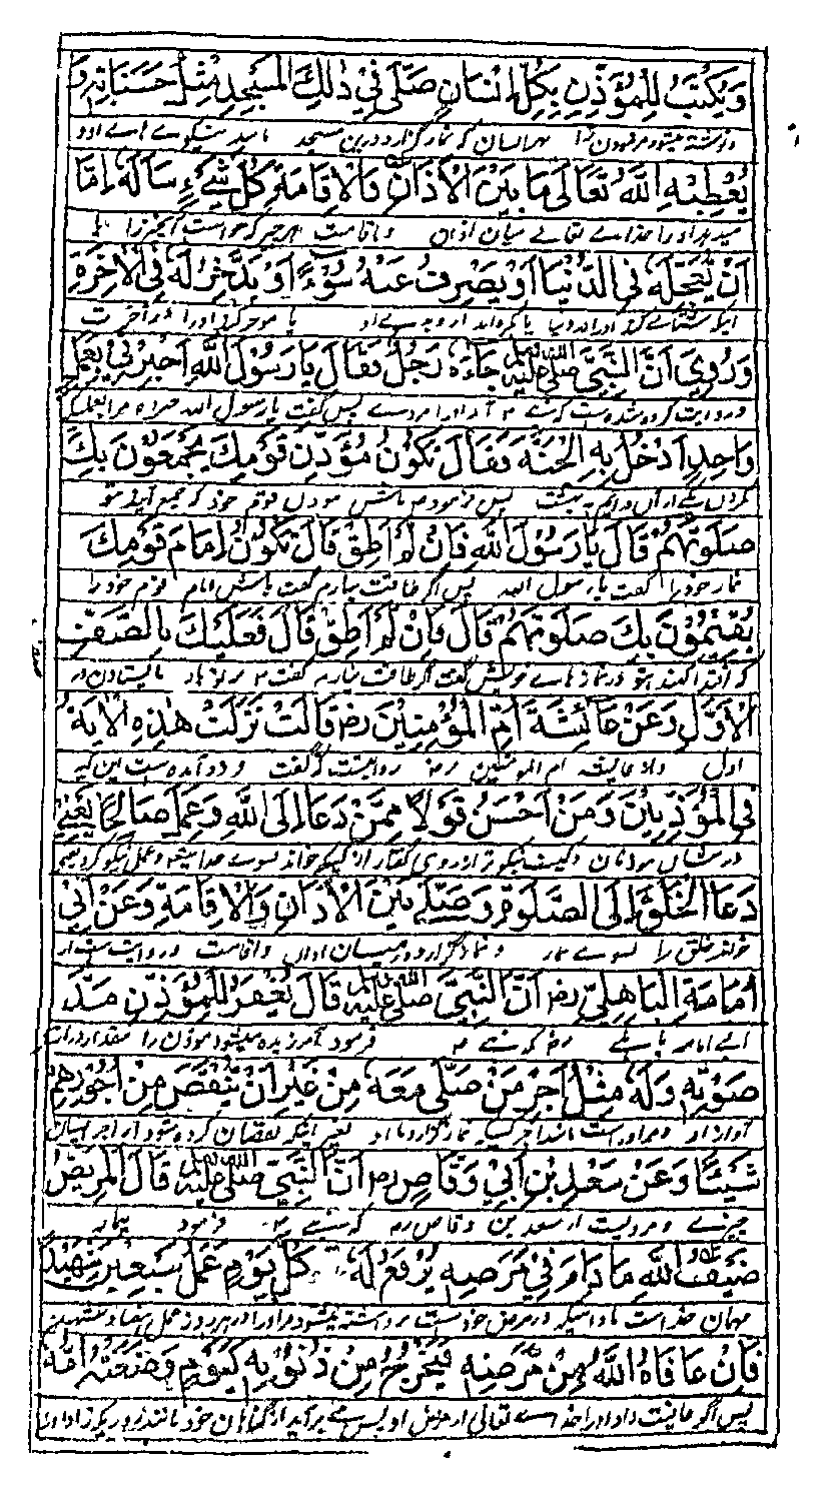 وَيُكْتَبُ لِلْمُؤَذِّنِ بِكُلِّ إِنْسَانٍ صَلَّى فِي ذٰلِكَ الْمَسْجِدِ مِثْلُ حَسَنَاتِهِ وَ
ونوشته میشود مر مؤذن را بهر انسان که نماز گزارد درین مسجد مانند نیکوے هاے او و
يُعْطِيْهِ اللّٰهُ تَعَالَى مَا بَيْنَ الْأَذَانِ وَالْإِقَامَةِ كُلَّ شَيْءٍ سَأَلَهُ إِمَّا
میدهد او را خداے تعالے میان اذان و اقامت هر چیز که خواست آنچیز را یا
أَنْ يُعَجِّلَهُ فِي الدُّنْيَا أَوْ يَصْرِفَ عَنْهُ سُوْءًا أَوْ يَدَّخِرَ لَهُ فِي الْآخِرَةِ
اینکه شتابے کند او را در دنیا یا گرداند از وی بدے او یا موخر کند او را در آخرت
وَرُوِيَ أَنَّ النَّبِيَّ صلى الله عليه وسلم جَاءَهُ رَجُلٌ فَقَالَ يَا رَسُوْلَ اللّٰهِ أَخْبِرْنِي بِعَمَلٍ
و روایت کرده شده است که نبے آمد او را مردے پس گفت یا رسول الله خبر ده مرا بعمل
وَاحِدٍ أَدْخُلُ بِهِ الْجَنَّةَ فَقَالَ تَكُوْنُ مُؤَذِّنَ قَوْمِكَ يَجْمَعُوْنَ بِكَ
پس فرمود باش موذن قوم خود که جمع آیند بتو
صَلٰوتَهُمْ قَالَ يَا رَسُوْلَ اللّٰهِ فَإِنْ لَمْ أُطِقْ قَالَ تَكُوْنُ إِمَامَ قَوْمِكَ
نماز خود را گفت یا رسول الله پس اگر طاقت نیارم گفت باش امام قوم خود را
يُقِيْمُوْنَ بِكَ صَلٰوتَهُمْ قَالَ فَإِنْ لَمْ أُطِقْ قَالَ فَعَلَيْكَ بِالصَّفِّ
که اقتدا کنند بتو در نماز هاے خویش گفت اگر طاقت نیارم گفت بر تو باد بایستادن در
الْأَوَّلِ وَعَنْ عَائِشَةَ أُمِّ الْمُؤْمِنِيْنَ رض قَالَتْ نَزَلَتْ هٰذِهِ الْآيَةُ
اول و از عایشه ام المومنین رض روایتست که گفت فرود آمده ست این آیه
فِي الْمُؤَذِّنِيْنَ وَمَنْ أَحْسَنُ قَوْلًا مِمَّنْ دَعَا إِلَى اللّٰهِ وَعَمِلَ صَالِحًا يَعْنِي
در شان موذنان و کیست نیکوتر از روی گفتار از کسیکه خواند بسوے خدا و عمل نیکو کرد
دَعَا الْخَلْقَ إِلَى الصَّلٰوةِ وَصَلَّى بَيْنَ الْأَذَانِ وَالْإِقَامَةِ وَعَنْ أَبِي
خواند خلق را بسوے نماز و نماز گزارد درمیان اذان و اقامت و روایت ست از
أُمَامَةَ الْبَاهِلِيِّ رض أَنَّ النَّبِيَّ صلى الله عليه وسلم قَالَ يُغْفَرُ لِلْمُؤَذِّنِ مَدَّ
ابے امامه باهلے رض که نبے فرمود آمرزیده میشود موذن را مقدار درازی
صَوْتِهِ وَلَهُ مِثْلُ أَجْرِ مَنْ صَلَّى مَعَهُ مِنْ غَيْرِ أَنْ يَنْقُصَ مِنْ أُجُوْرِهِمْ
آواز او و مر او راست مانند اجر کسیکه نماز گزارد با او بغیر اینکه نقصان کرده شود از اجر ایشان
شَيْئًا وَعَنْ سَعْدِ بْنِ أَبِي وَقَّاصٍ رض أَنَّ النَّبِيَّ صلى الله عليه وسلم قَالَ الْمَرِيْضُ
چیزے و مرویست از سعد بن وقاص رض که نبے فرمود بیمار
ضَيْفُ اللّٰهِ مَا دَامَ فِي مَرَضِهِ يُرْفَعُ لَهُ كُلَّ يَوْمٍ عَمَلُ سَبْعِيْنَ شَهِيْدًا
مهمان خداست مادامیکه در مرض خودست برداشته میشود مر او را در هر روز عمل هفتاد شهید
فَإِنْ عَافَاهُ اللّٰهُ مِنْ مَرَضِهِ فَيَخْرُجُ مِنْ ذُنُوْبِهِ كَيَوْمٍ وَضَعَتْهُ أُمُّهُ
پس اگر عافیت داد او را خداے تعالی از مرض او پس بر آید از گناهان خود مانند روزیکه زاد او را